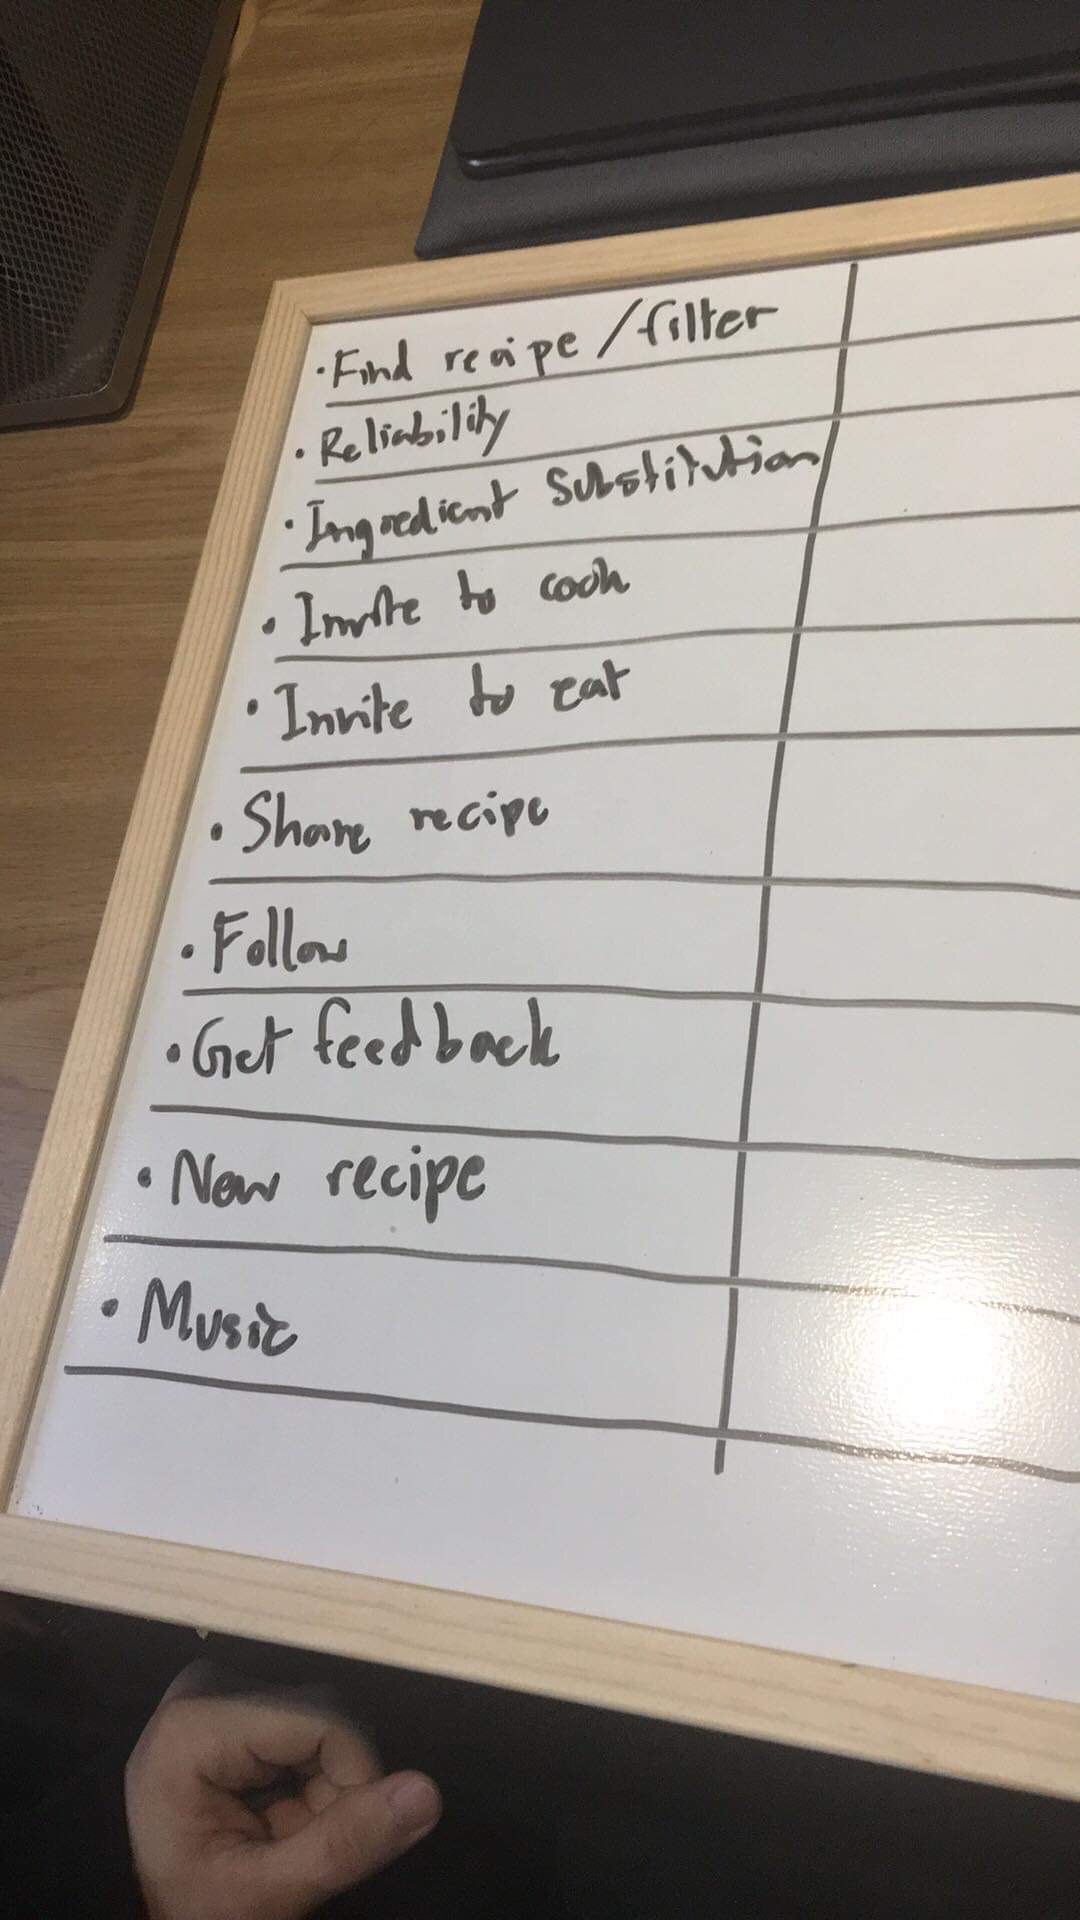 · Find recipe / filter
· Reliability
· Ingredient Substitution
· Invite to cook
· Invite to eat
· Share recipe
· Follow
· Get feedback
· New recipe
· Music